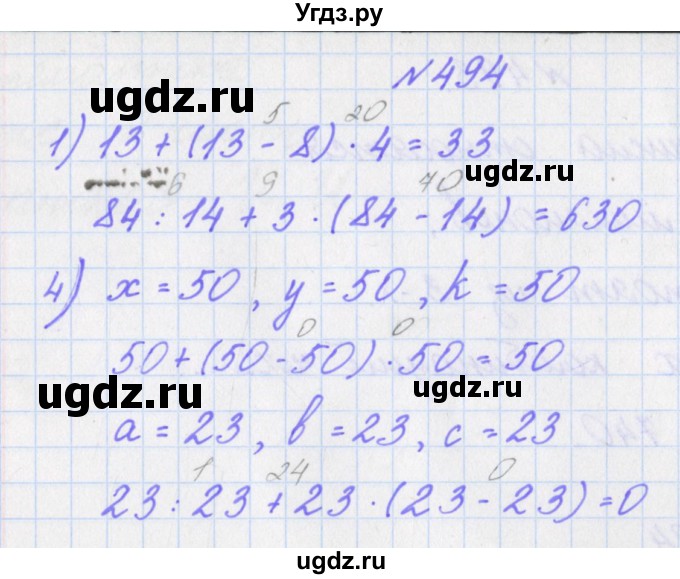 Угдз.ру
№494
ugdz.ru
5 20
1) 13 + (13 - 8) · 4 = 33
ugdz.ru
6 9 70
84 : 14 + 3 · (84 - 14) = 630
4) x = 50, y = 50, k = 50
0 0
50 + (50 - 50) · 50 = 50
ugdz.ru
ugdz.ru
a = 23, b = 23, c = 23
1 24 0
23 : 23 + 23 · (23 - 23) = 0
ugdz.ru